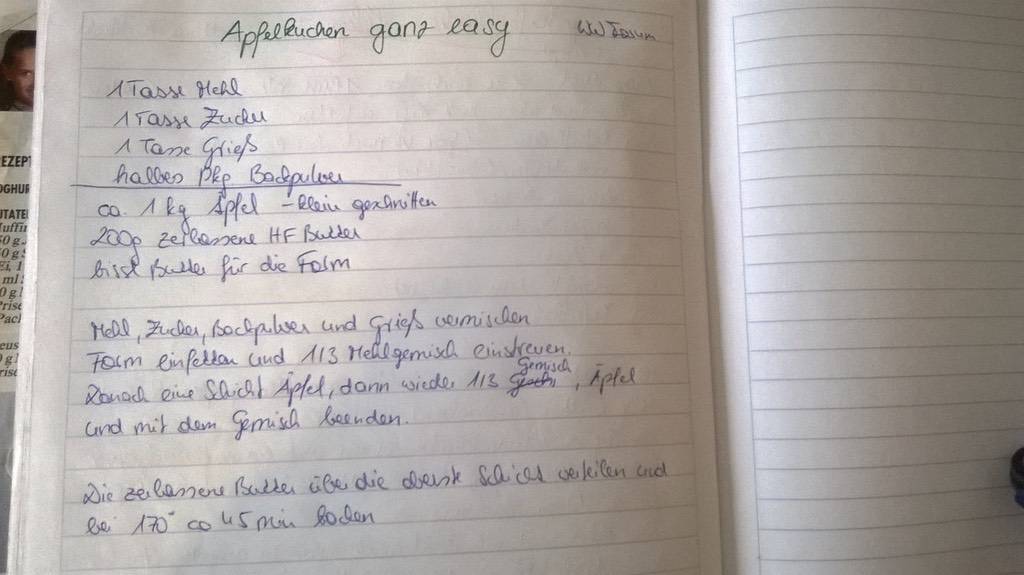 Apfelkuchen ganz easy
WW Forum
1 Tasse Mehl
1 Tasse Zucker
1 Tasse Grieß
halbes Pkg Backpulver
ca. 1 kg Äpfel - klein geschnitten
200g zerlassene HF Butter
bissl Butter für die Form
Mehl, Zucker, Backpulver und Grieß vermischen
Form einfetten und 1/3 Mehlgemisch einstreuen.
Danach eine Schicht Äpfel, dann wieder 1/3 Gemisch, Äpfel
und mit dem Gemisch beenden.
Die zerlassene Butter über die oberste Schicht verteilen und
bei 170° ca 45 min backen